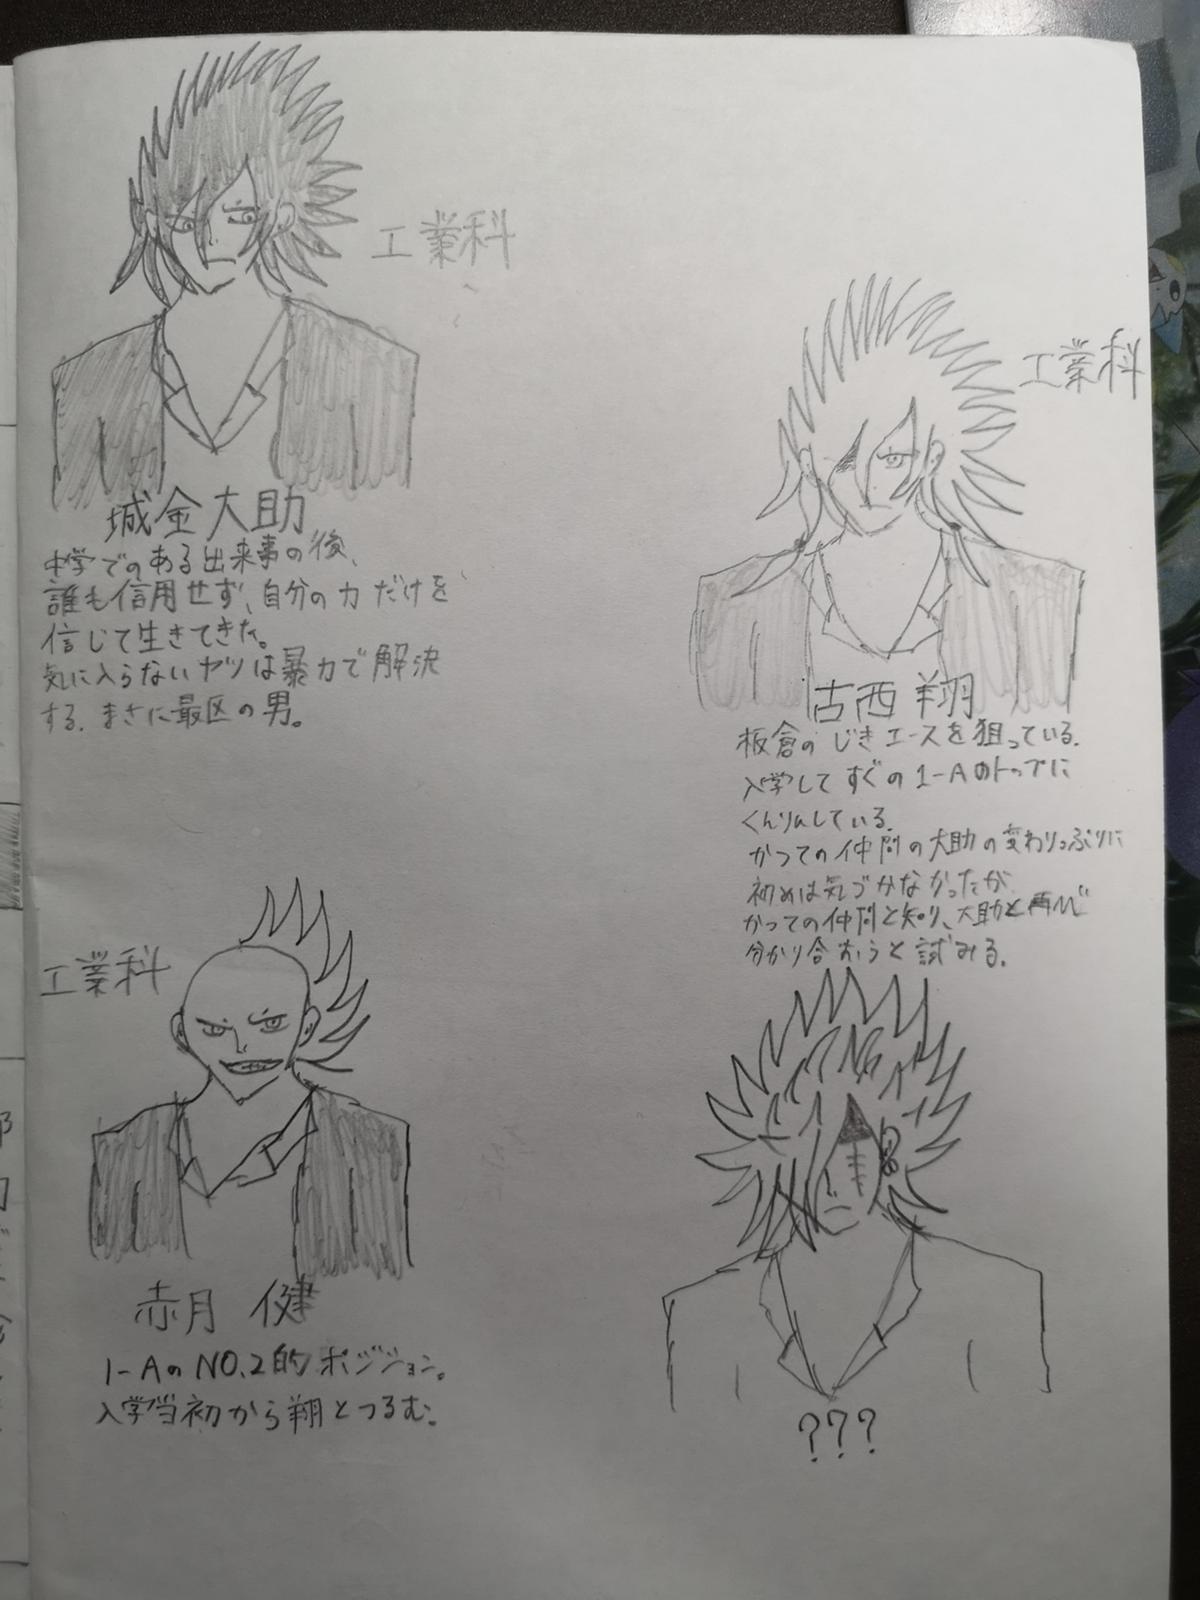 工業科
城金大助
中学でのある出来事の後、
誰も信用せず、自分の力だけを
信じて生きてきた。
気に入らないヤツは暴力で解決
する、まさに最凶の男。
工業科
古西翔
板倉のじきエースを狙っている。
入学してすぐの1-Aのトップに
くんりんしている。
かつての仲間の大助の変わりっぷりに
初めは気づかなかったが
かつての仲間と知り、大助と再び
分かり合おうと試みる。
工業科
赤月 健
1-AのNO.2的ポジション。
入学当初から翔とつるむ。
???